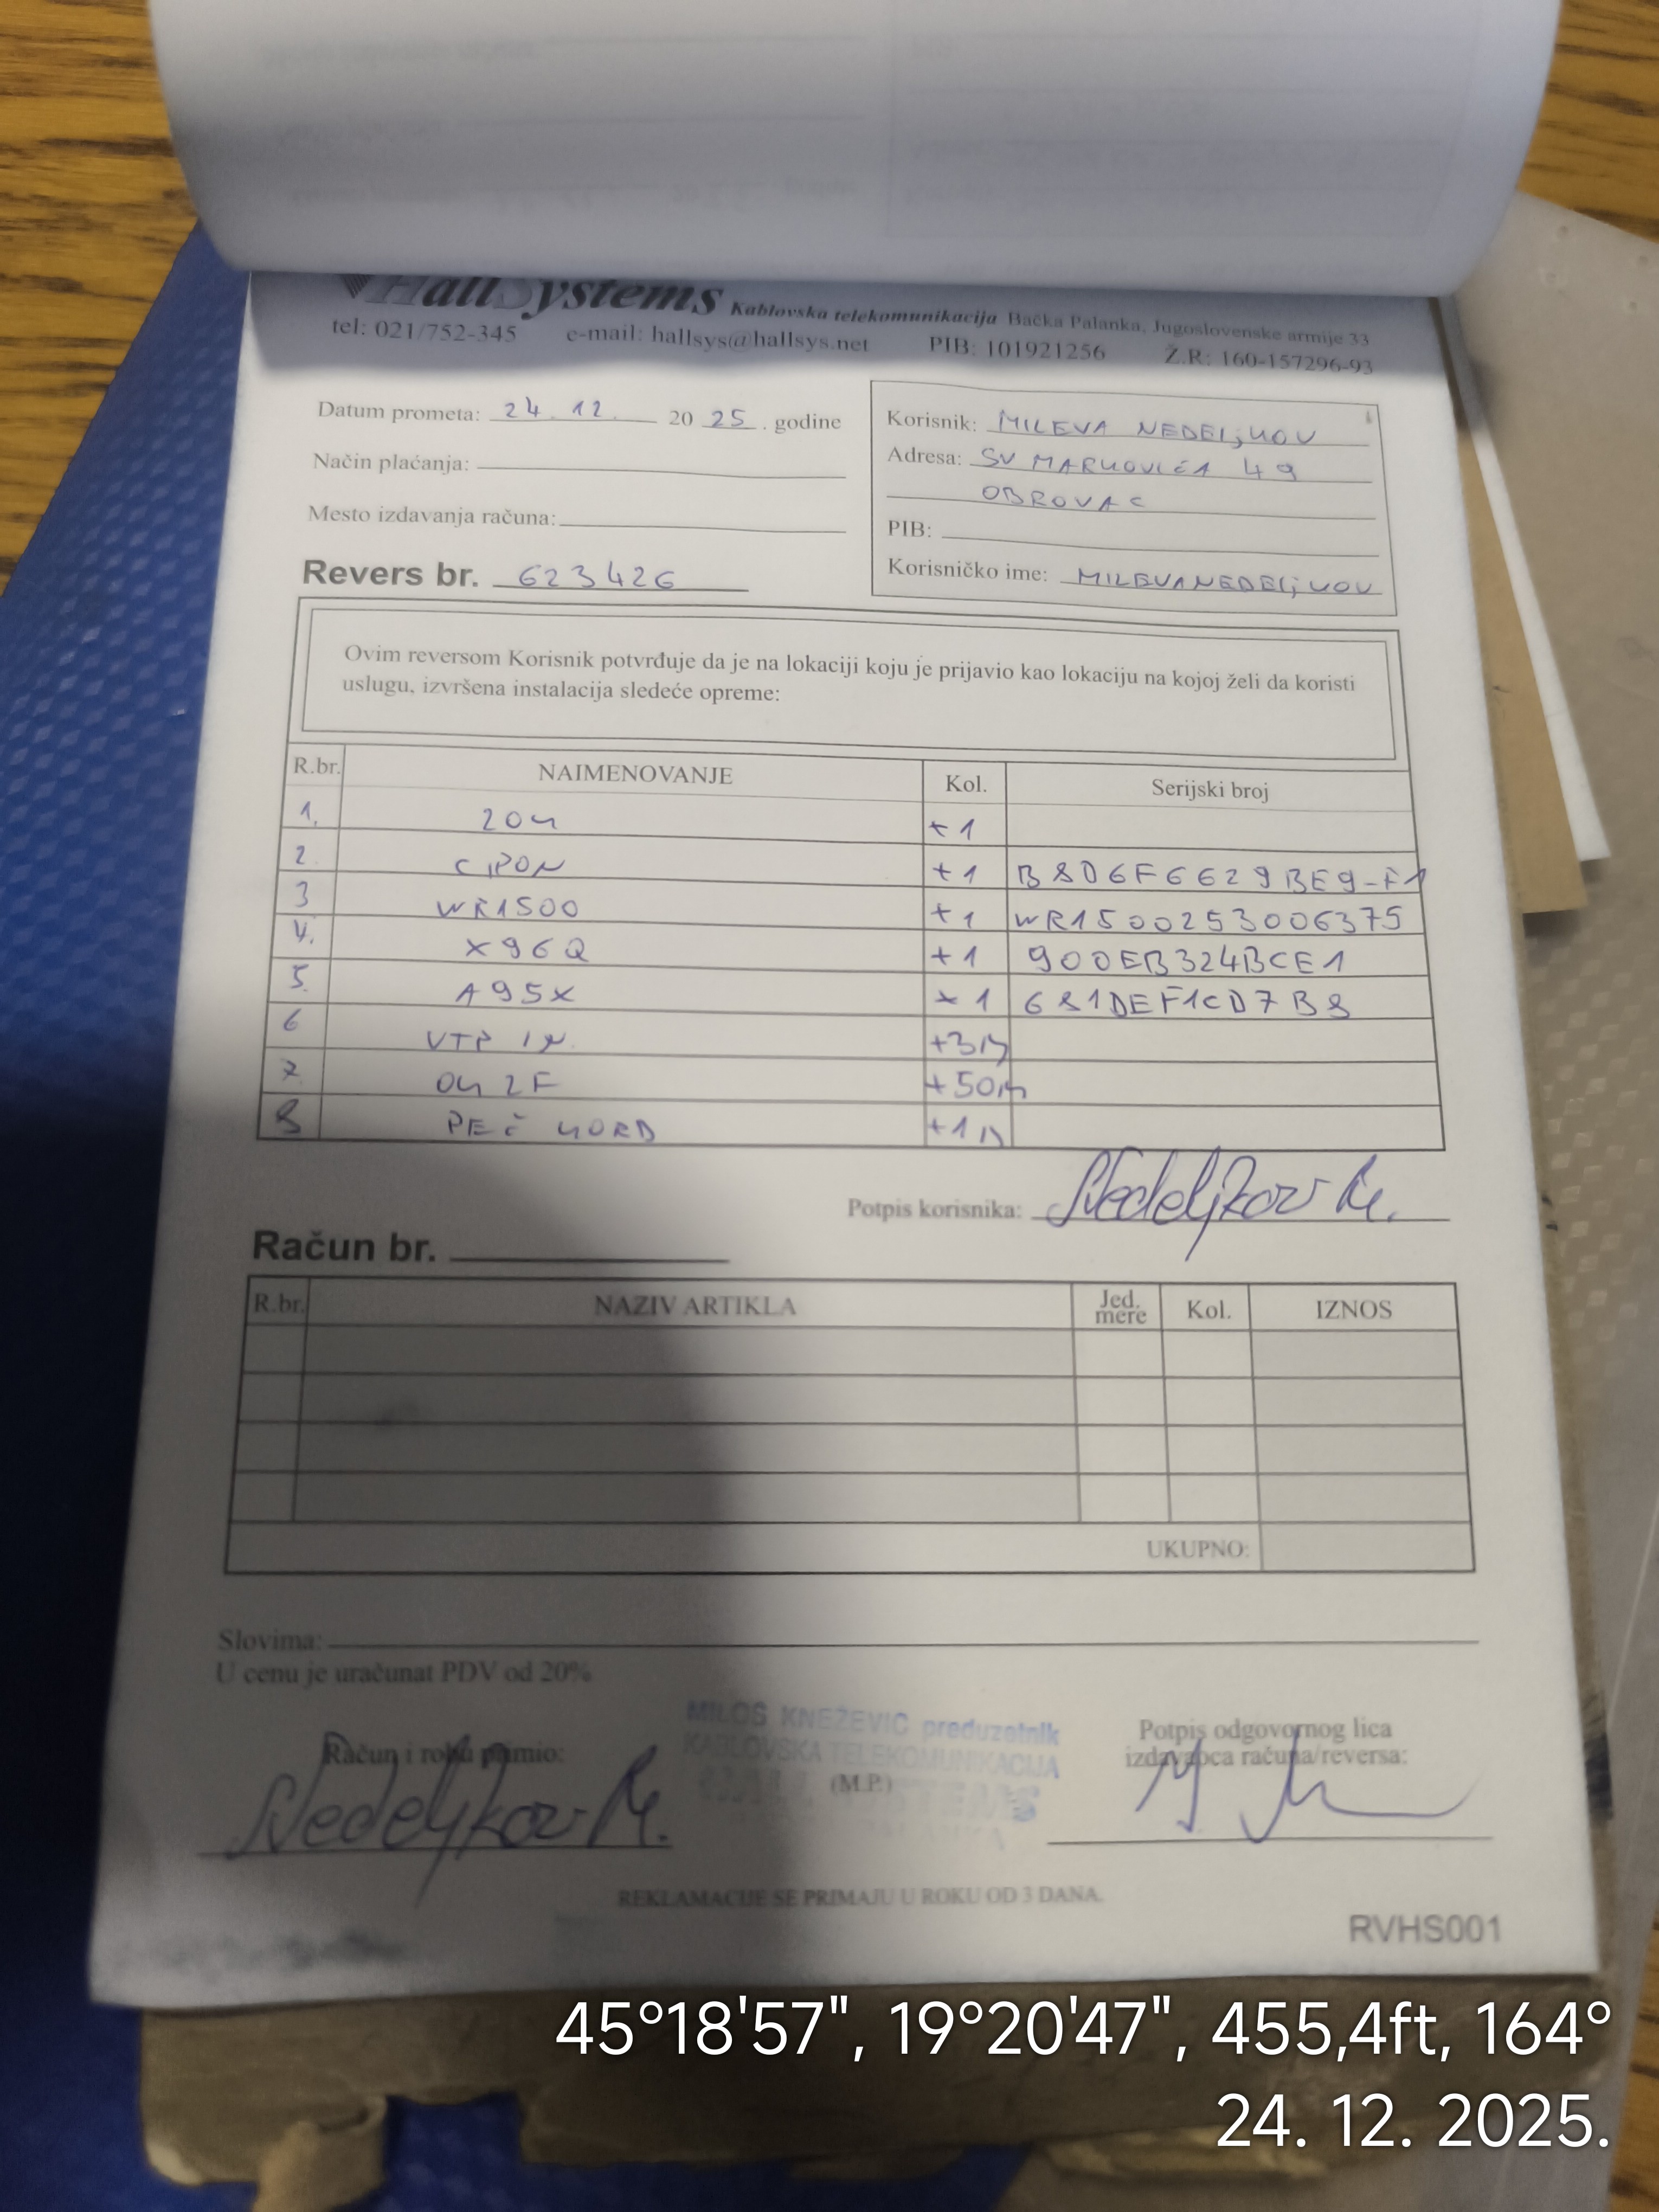 HallSystems Kablovska telekomunikacija Bačka Palanka, Jugoslovenske armije 33
tel: 021/752-345 e-mail: hallsys@hallsys.net PIB: 101921256 Ž.R: 160-157296-93
Datum prometa: 24. 12. 2025. godine
Način plaćanja:
Mesto izdavanja računa:
Revers br. 623426
Korisnik: MILEVA NEDELJKOV
Adresa: SV MARKOVIĆA 49
OBROVAC
PIB:
Korisničko ime: MILEVANEDELJKOV
Ovim reversom Korisnik potvrđuje da je na lokaciji koju je prijavio kao lokaciju na kojoj želi da koristi
uslugu, izvršena instalacija sledeće opreme:
R.br. NAIMENOVANJE Kol. Serijski broj
1. ZOK +1
2. +1 B8D6F6629BE9-F1
3 WR1500 +1 WR1500253006375
4. X96Q +1 900EB324BCE1
5. A95X +1 681DEF1CD7B8
6 UTP +3m
7. OK 2F +50m
8 PEČ KORD +1
Potpis korisnika: Nedeljkov M.
Račun br.
R.br. NAZIV ARTIKLA Jed. mere Kol. IZNOS
UKUPNO:
Slovima:
U cenu je uračunat PDV od 20%
Račun i robu primio:
Nedeljkov M.
MILOŠ KNEŽEVIĆ preduzetnik
KABLOVSKA TELEKOMUNIKACIJA
HALL SYSTEMS
(M.P.)
Potpis odgovornog lica
izdavaoca računa/reversa:
REKLAMACIJE SE PRIMAJU U ROKU OD 3 DANA.
RVHS001
45°18'57", 19°20'47", 455,4ft, 164°
24. 12. 2025.